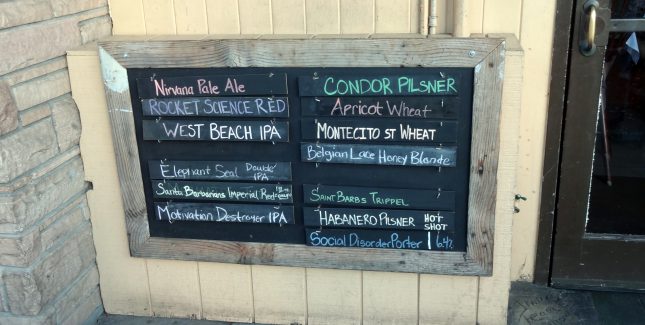 Nirvana Pale Ale
Rocket Science Red
West Beach IPA
Elephant Seal Double IPA
Santa Barbarians Imperial Red
Motivation Destroyer IPA
Condor Pilsner
Apricot Wheat
Montecito St Wheat
Belgian Lace Honey Blonde
Saint Barb's Trippel
Habanero Pilsner HOT SHOT
Social Disorder Porter